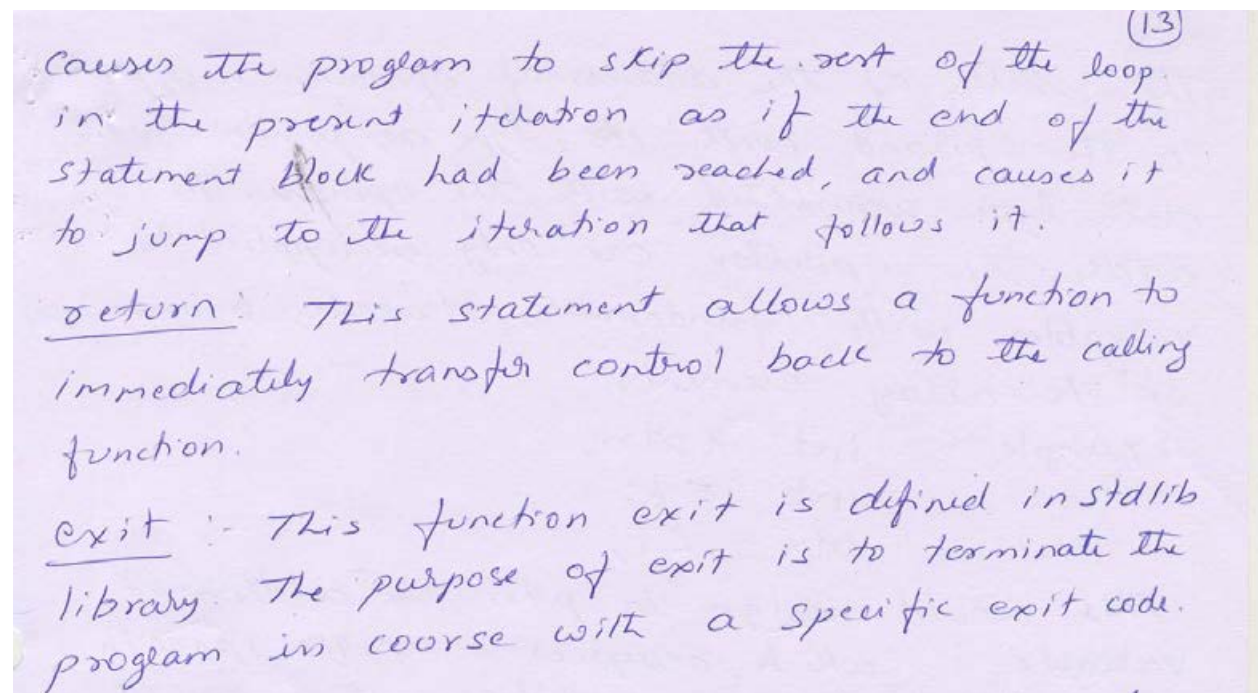 13
causes the program to skip the rest of the loop
in the present iteration as if the end of the
statement block had been reached, and causes it
to jump to the iteration that follows it.
return : This statement allows a function to
immediately transfer control back to the calling
function.
exit :- This function exit is defined in stdlib
library. The purpose of exit is to terminate the
program in course with a specific exit code.